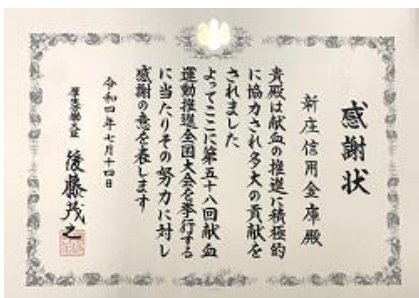 感謝状
新庄信用金庫殿
貴殿は献血の推進に積極的
に協力され多大の貢献を
されました
よってここに第五十八回献血
運動推進全国大会を挙行する
に当たりその努力に対し
感謝の意を表します
令和四年七月十四日
厚生労働大臣 後藤茂之